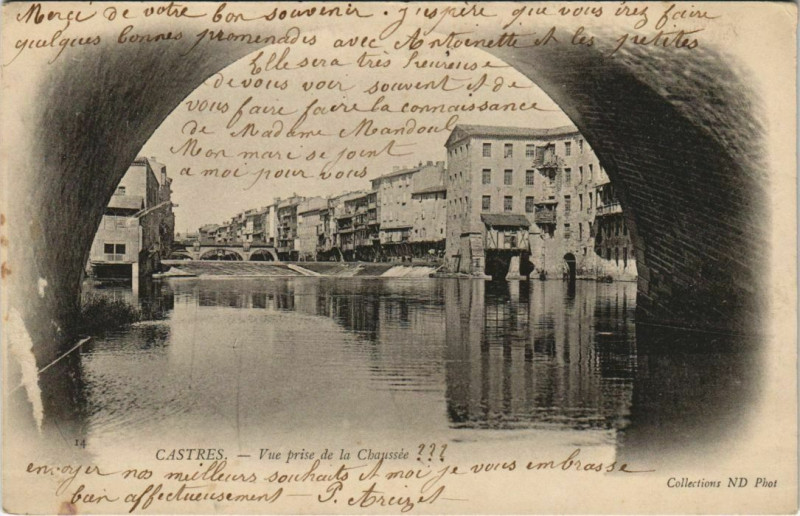 Merci de votre bon souvenir. j'espère que vous irez faire
quelques bonnes promenades avec Antoinette et les petites
Elle sera très heureuse
de vous voir souvent et de
vous faire faire la connaissance
de Madame Mandoul
Mon mari se joint
a moi pour vous
14
CASTRES. — Vue prise de la Chaussée ???
envoyer nos meilleurs souhaits et moi je vous embrasse
bien affectueusement — P.
Collections ND Phot